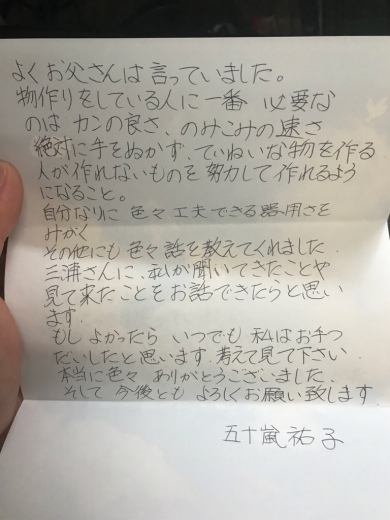 よくお父さんは言っていました。
物作りをしている人に一番 必要な
のは カンの良さ、のみこみの速さ
絶対に手をぬかず、ていねいな物を作る
人が作れないものを努力して作れるよう
になること。
自分なりに色々工夫できる器用さを
みがく
その他にも色々話を教えてくれました.
三浦さんに、私が聞いてきたことや
見て来たことをお話できたらと思い
ます.
もし よかったら いつでも 私はお手つ
だいしたと思います. 考えて見て下さい.
本当に色々 ありがとうございました.
そして 今後とも よろしくお願い致します.
五十嵐祐子